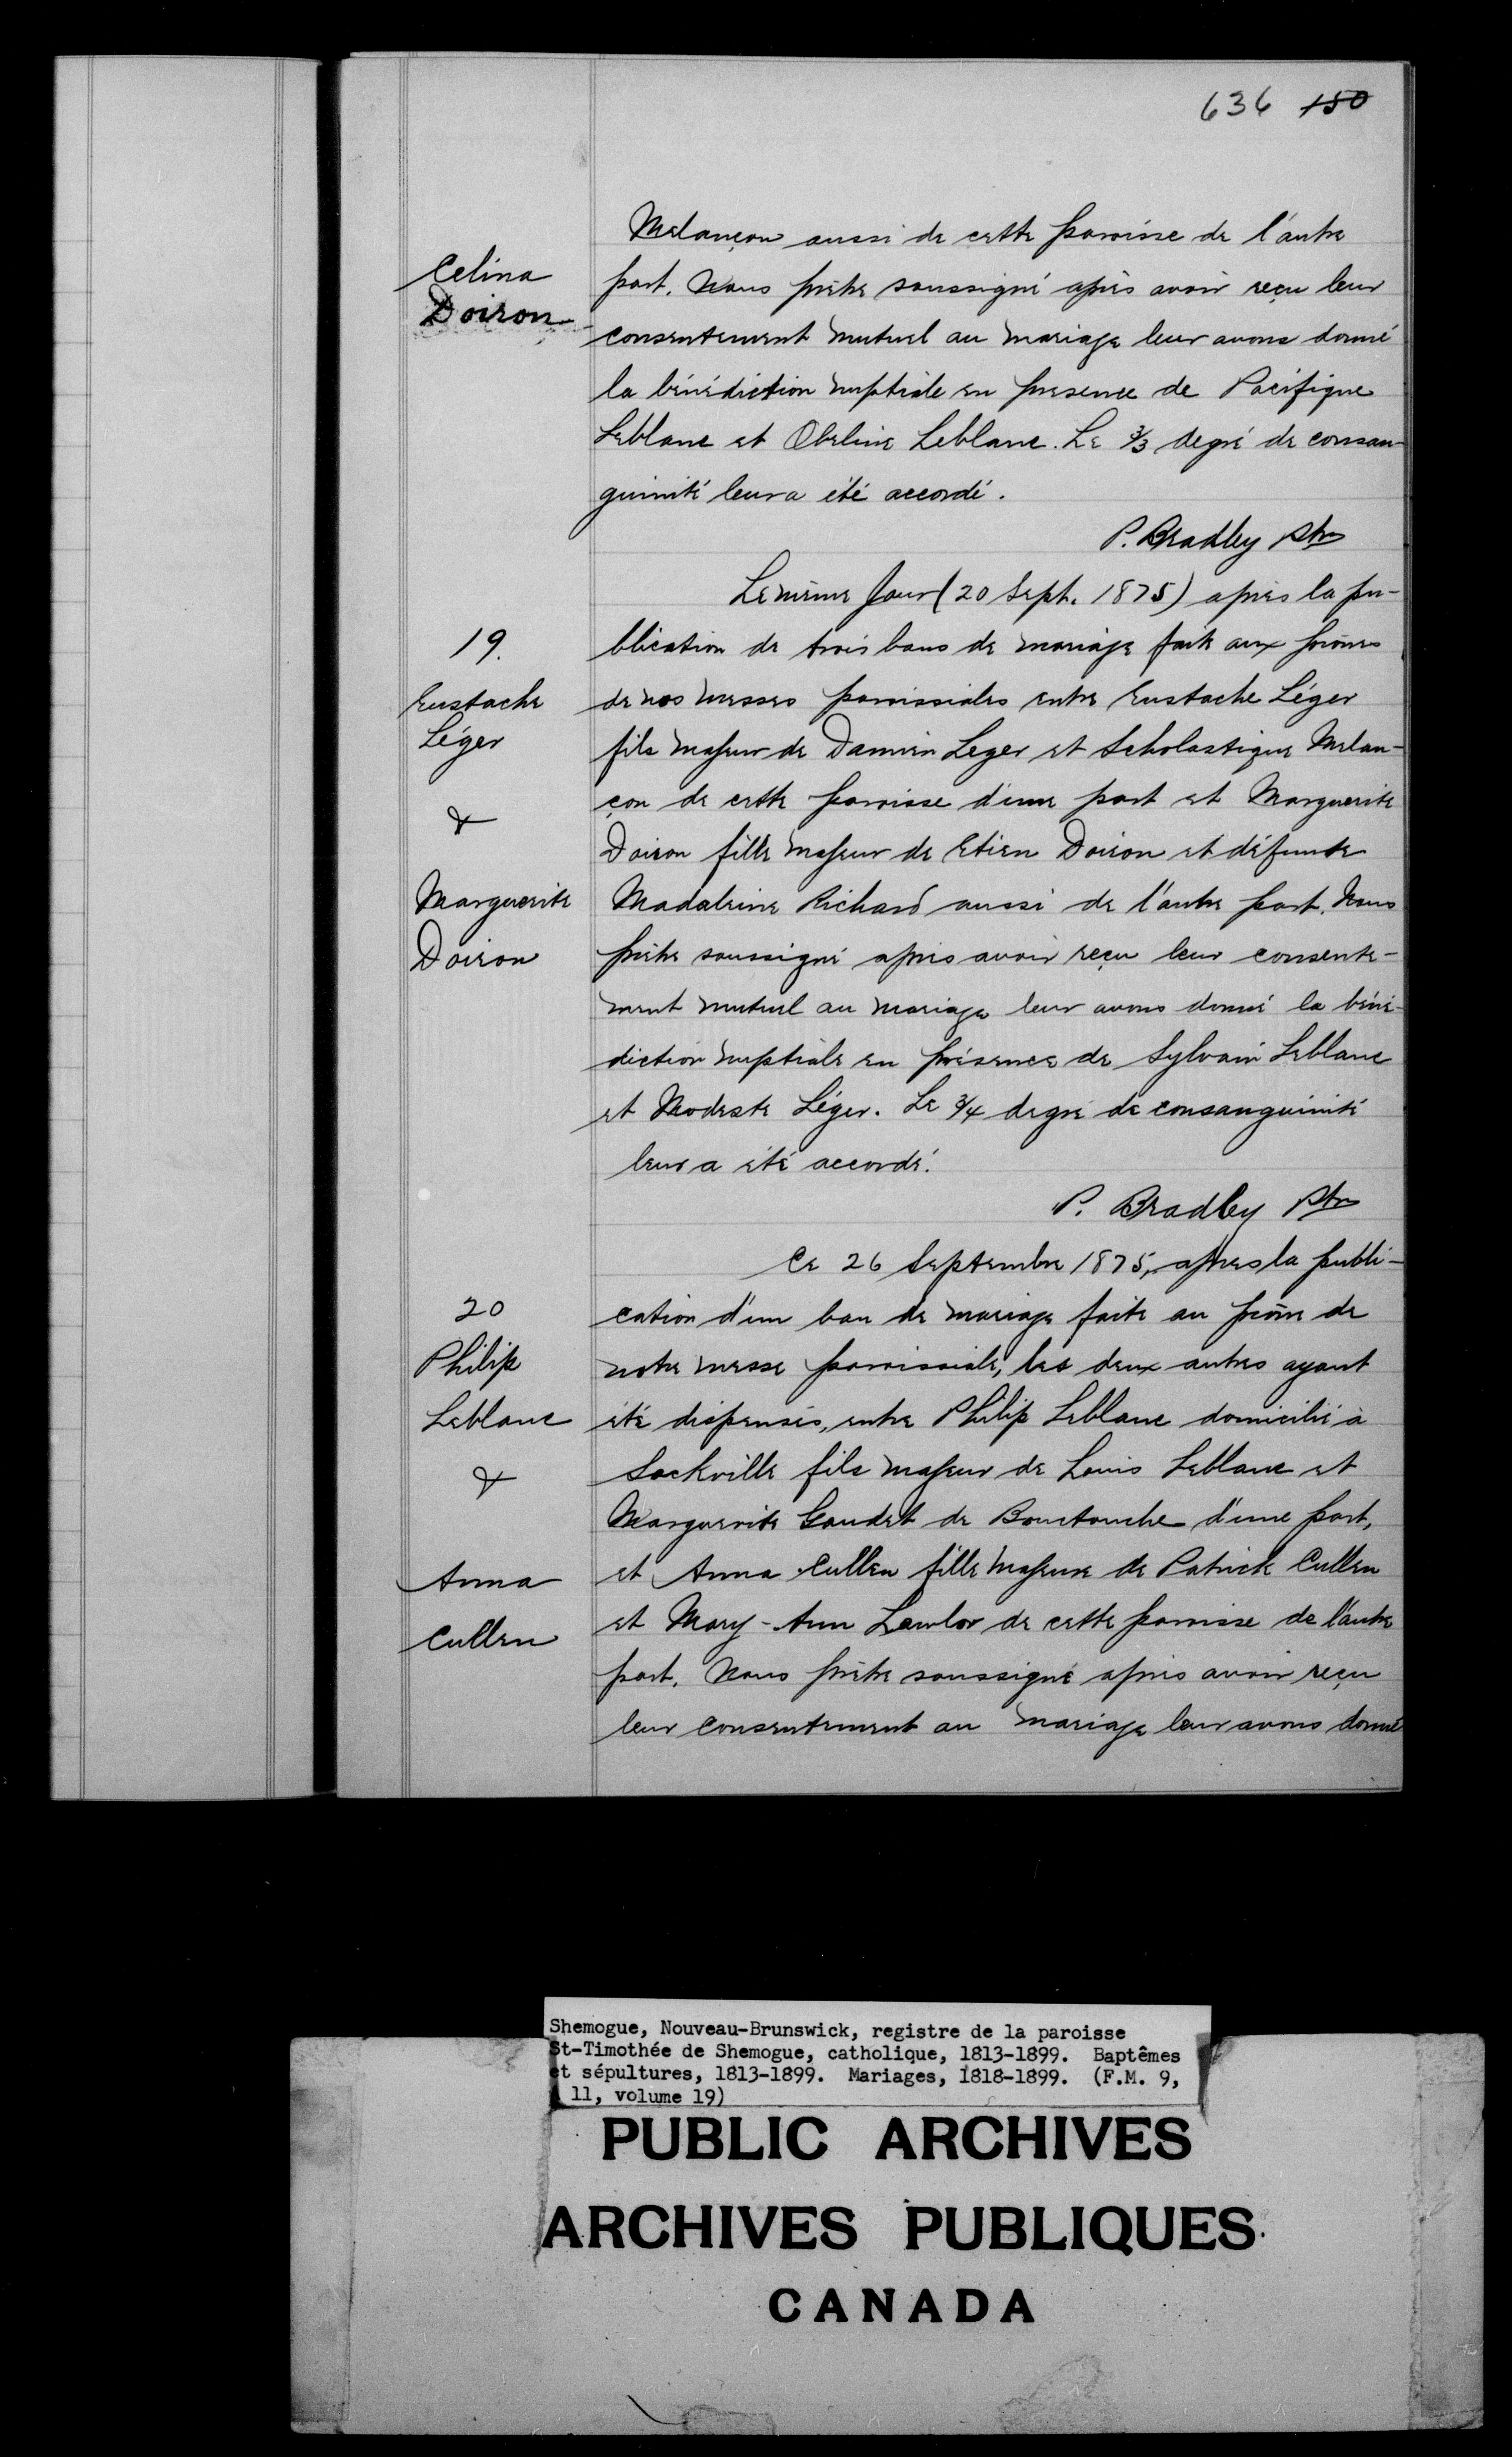 636 150
Melançon aussi de cette paroisse de l'autre
Celina
Doiron
part. Nous prêtre soussigné après avoir reçu leur
consentement mutuel au mariage leur avons donné
la bénédiction nuptiale en presence de Pacifique
Leblanc et Obeline Leblanc. Le 3/3 degré de consan-
guinité leur a été accordé.
P. Bradley Ptre
Le même Jour (20 Sept. 1875) après la pu-
19.
Eustache
Léger
&
Marguerite
Doiron
blication de trois bans de mariage faite aux prônes
de nos messes paroissiales entre Eustache Léger
fils majeur de Damien Leger et Scholastique Melan-
çon de cette paroisse d'une part et Marguerite
Doiron fille majeur de Etien Doiron et défunte
Madaleine Richard aussi de l'autre part. Nous
prêtre soussigné après avoir reçu leur consente-
ment mutuel au mariage leur avons donné la béné-
diction nuptiale en présence de Sylvain Leblanc
et Modeste Léger. Le 3/4 degré de consanguinité
leur a été accordé.
P. Bradley Ptre
Ce 26 Septembre 1875, après la publi-
20
Philip
Leblanc
&
Anna
Cullen
cation d'un ban de mariage faite au prône de
notre messe paroissiale, les deux autres ayant
été dispensés, entre Philip Leblanc domicilié à
Sackville fils majeur de Louis Leblanc et
Marguerite Gaudet de Bouctouche d'une part,
et Anna Cullen fille majeure de Patrick Cullen
et Mary-Ann Lawlor de cette paroisse de l'autre
part. Nous prêtre soussigné après avoir reçu
leur consentement au mariage leur avons donné
Shemogue, Nouveau-Brunswick, registre de la paroisse
St-Timothée de Shemogue, catholique, 1813-1899. Baptêmes
et sépultures, 1813-1899. Mariages, 1818-1899. (F.M. 9,
11, volume 19)
PUBLIC ARCHIVES
ARCHIVES PUBLIQUES
CANADA